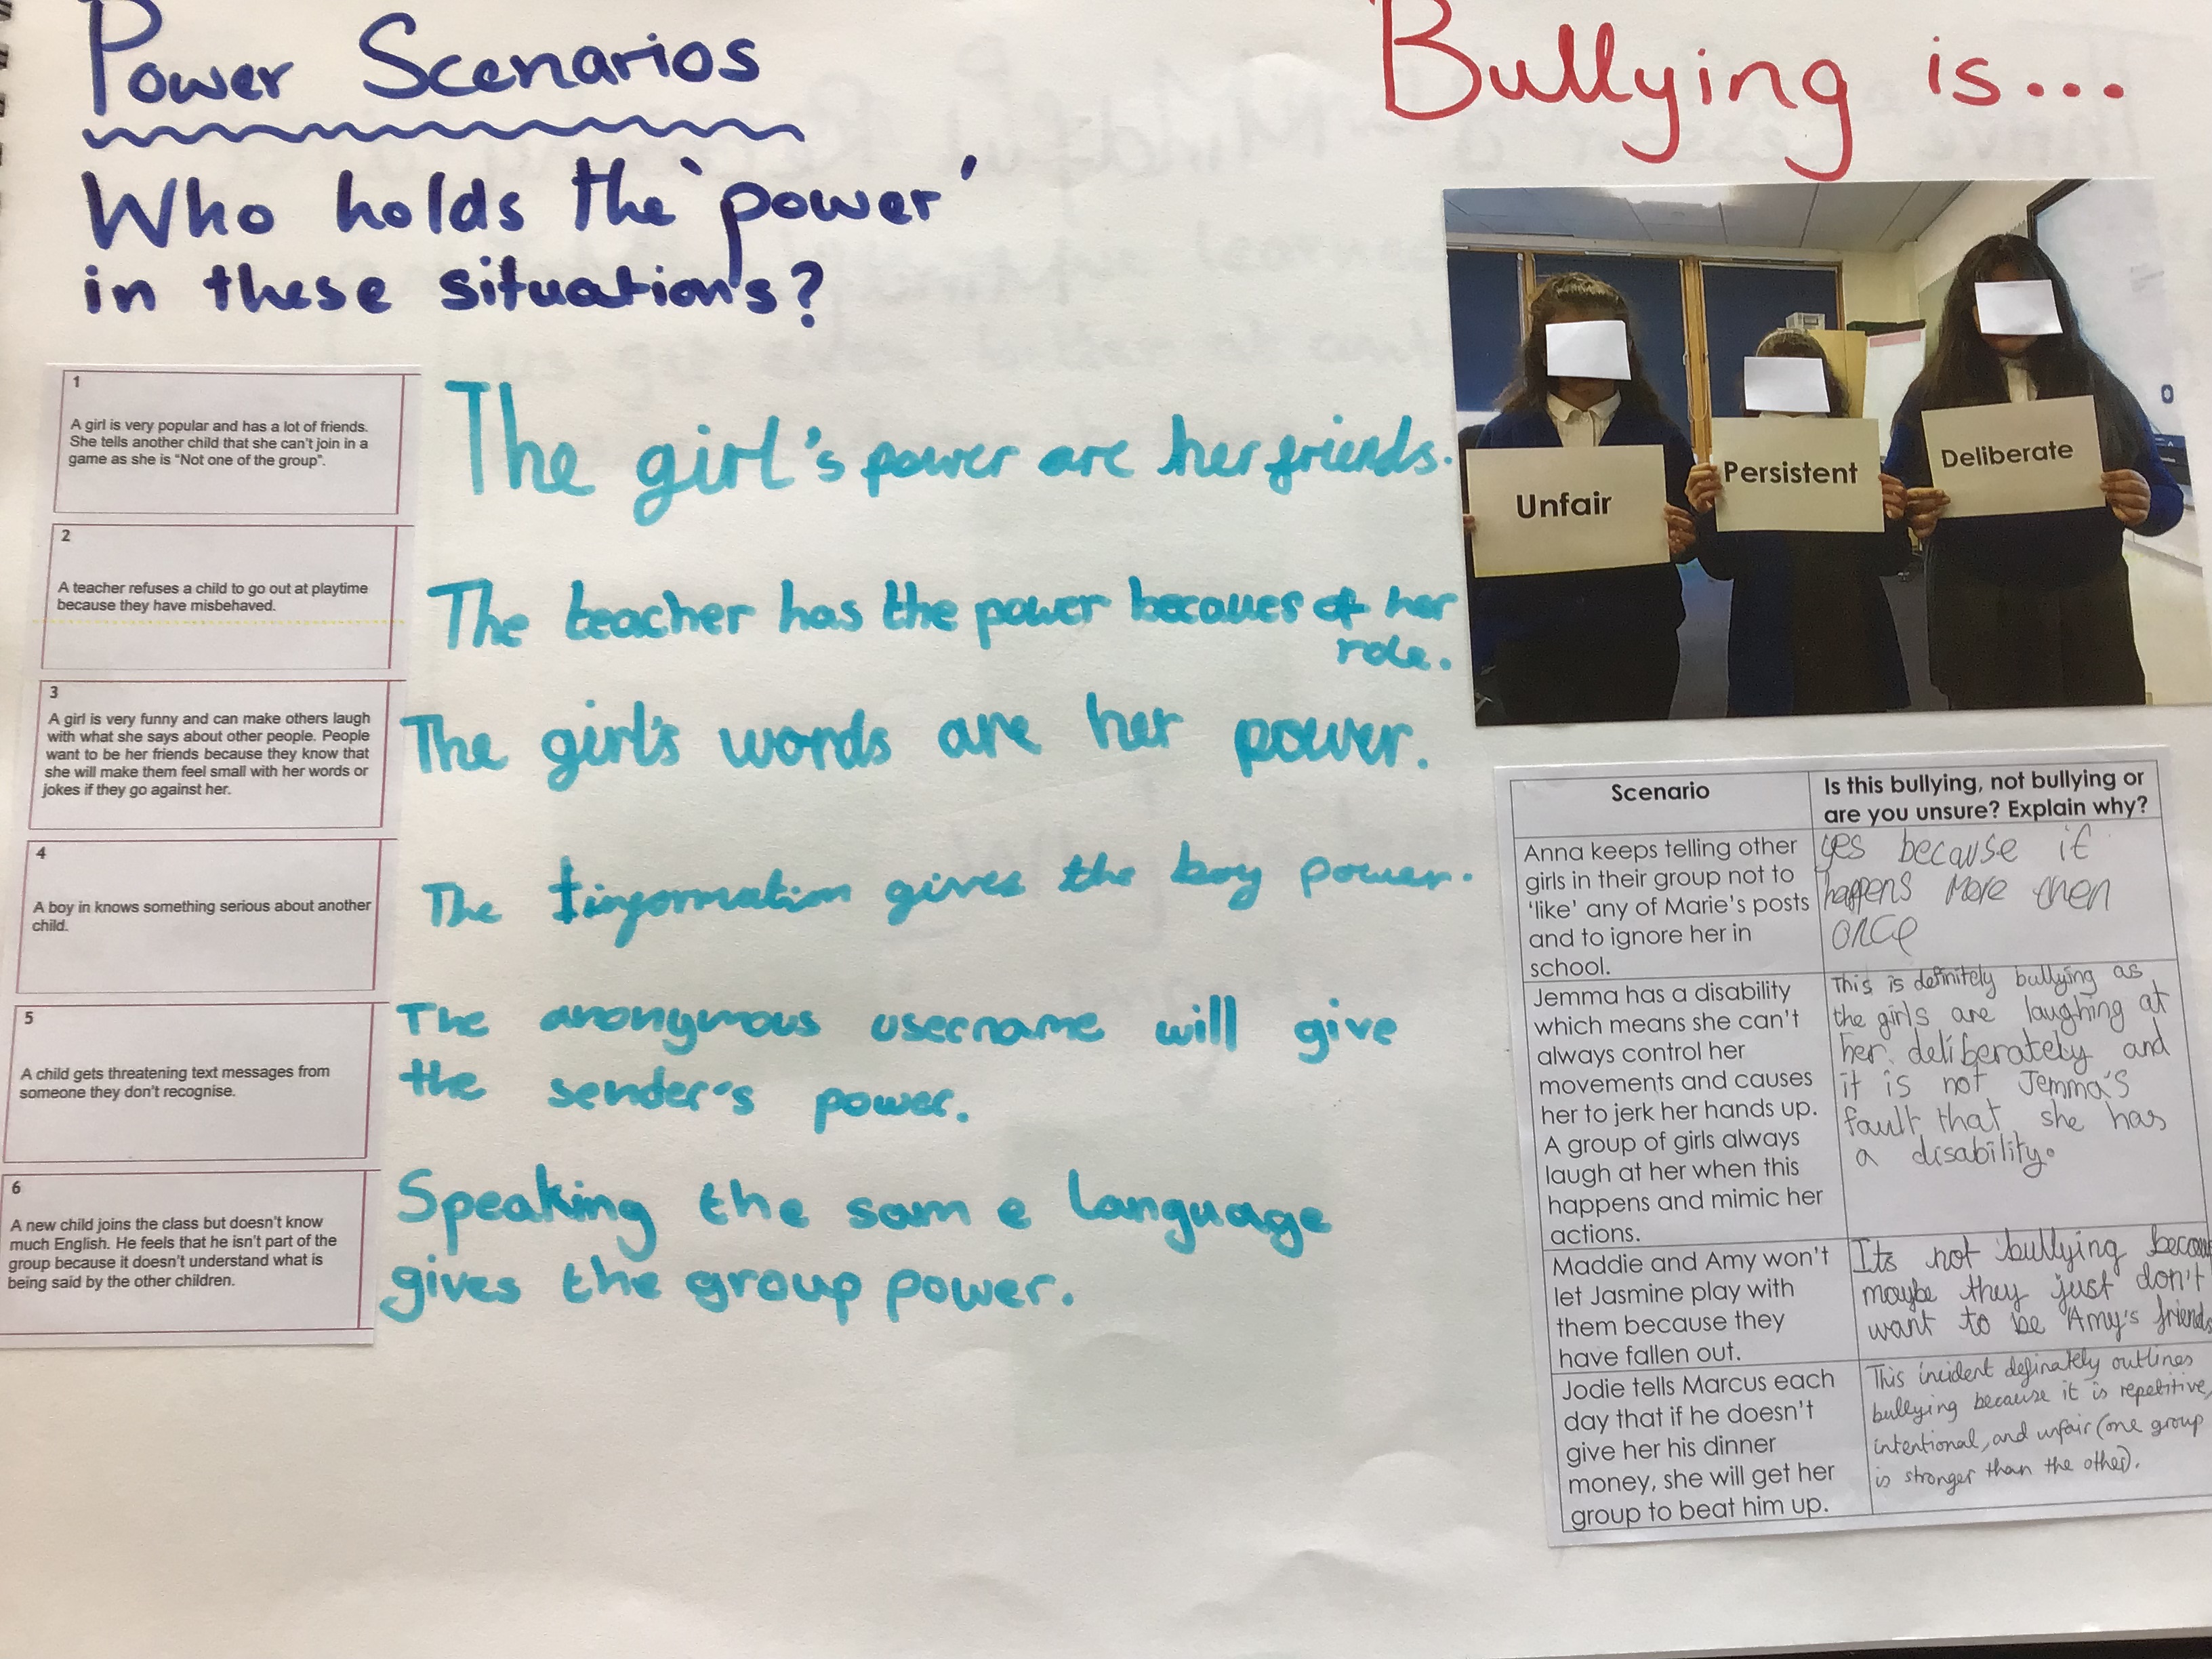 Power Scenarios
Who holds the 'power'
in these situations?
1
A girl is very popular and has a lot of friends.
She tells another child that she can't join in a
game as she is "Not one of the group".
The girl's power are her friends.
2
A teacher refuses a child to go out at playtime
because they have misbehaved.
The teacher has the power becaues of her
role.
3
A girl is very funny and can make others laugh
with what she says about other people. People
want to be her friends because they know that
she will make them feel small with her words or
jokes if they go against her.
The girl's words are her power.
4
A boy in knows something serious about another
child.
The information gives the boy power.
5
A child gets threatening text messages from
someone they don't recognise.
The anonymous username will give
the sender's power.
6
A new child joins the class but doesn't know
much English. He feels that he isn't part of the
group because it doesn't understand what is
being said by the other children.
Speaking the same language
gives the group power.
Bullying is...
Unfair
Persistent
Deliberate
Scenario
Is this bullying, not bullying or
are you unsure? Explain why?
Anna keeps telling other
girls in their group not to
'like' any of Marie's posts
and to ignore her in
school.
yes because it
happens More then
once
Jemma has a disability
which means she can't
always control her
movements and causes
her to jerk her hands up.
A group of girls always
laugh at her when this
happens and mimic her
actions.
This is definitely bullying as
the girls are laughing at
her deliberately and
it is not Jemma's
fault that she has
a disability.
Maddie and Amy won't
let Jasmine play with
them because they
have fallen out.
Its not bullying becaus
maybe they just don't
want to be Amy's friends
Jodie tells Marcus each
day that if he doesn't
give her his dinner
money, she will get her
group to beat him up.
This incident definately outlines
bullying because it is repetitive,
intentional, and unfair (one group
is stronger than the other).